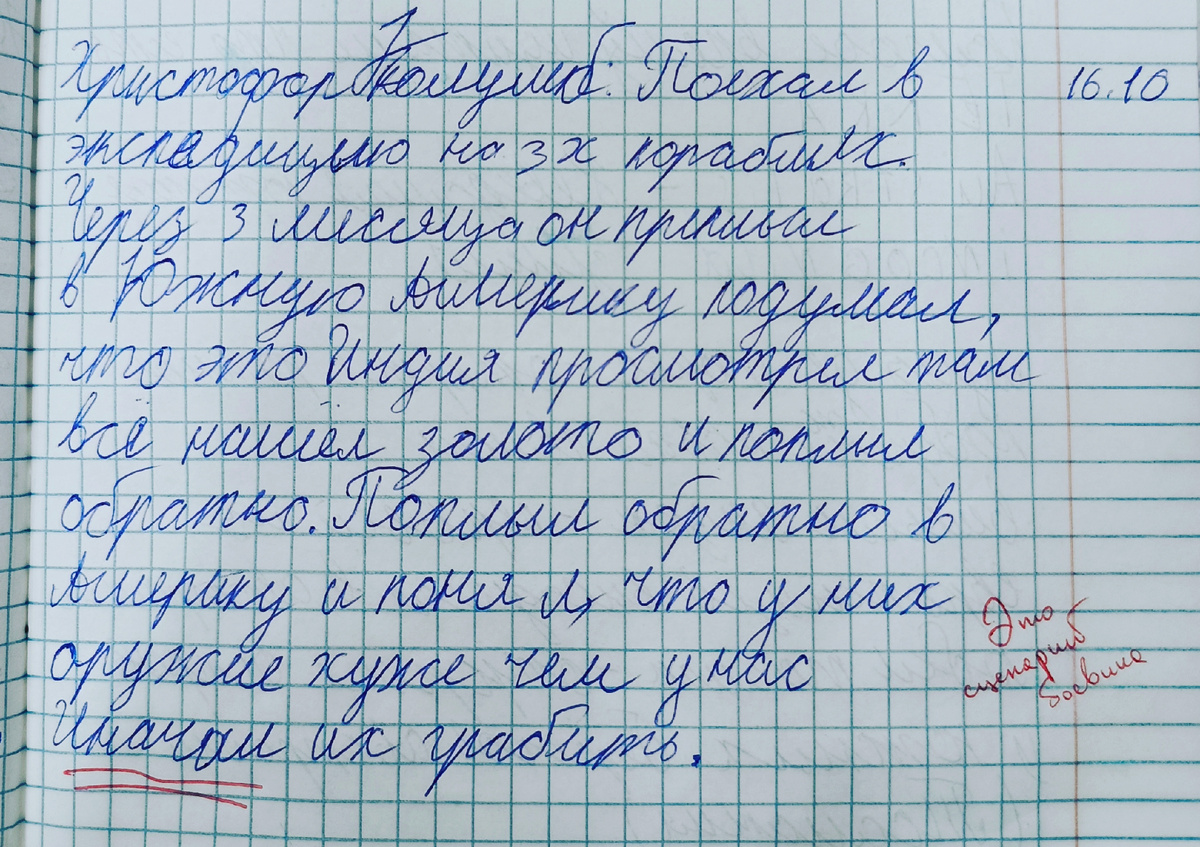 Христофор Колумб. Поехал в
16.10
экспедицию на 3х кораблях.
Через 3 месяца он преплыл
в Южную Америку подумал,
что это Индия просмотрел там
всё нашёл золото и поплыл
обратно. Поплыл обратно в
Америку и понял, что у них
оружие хуже чем у нас
Иначал их грабить.
Это
сценарий
боевика